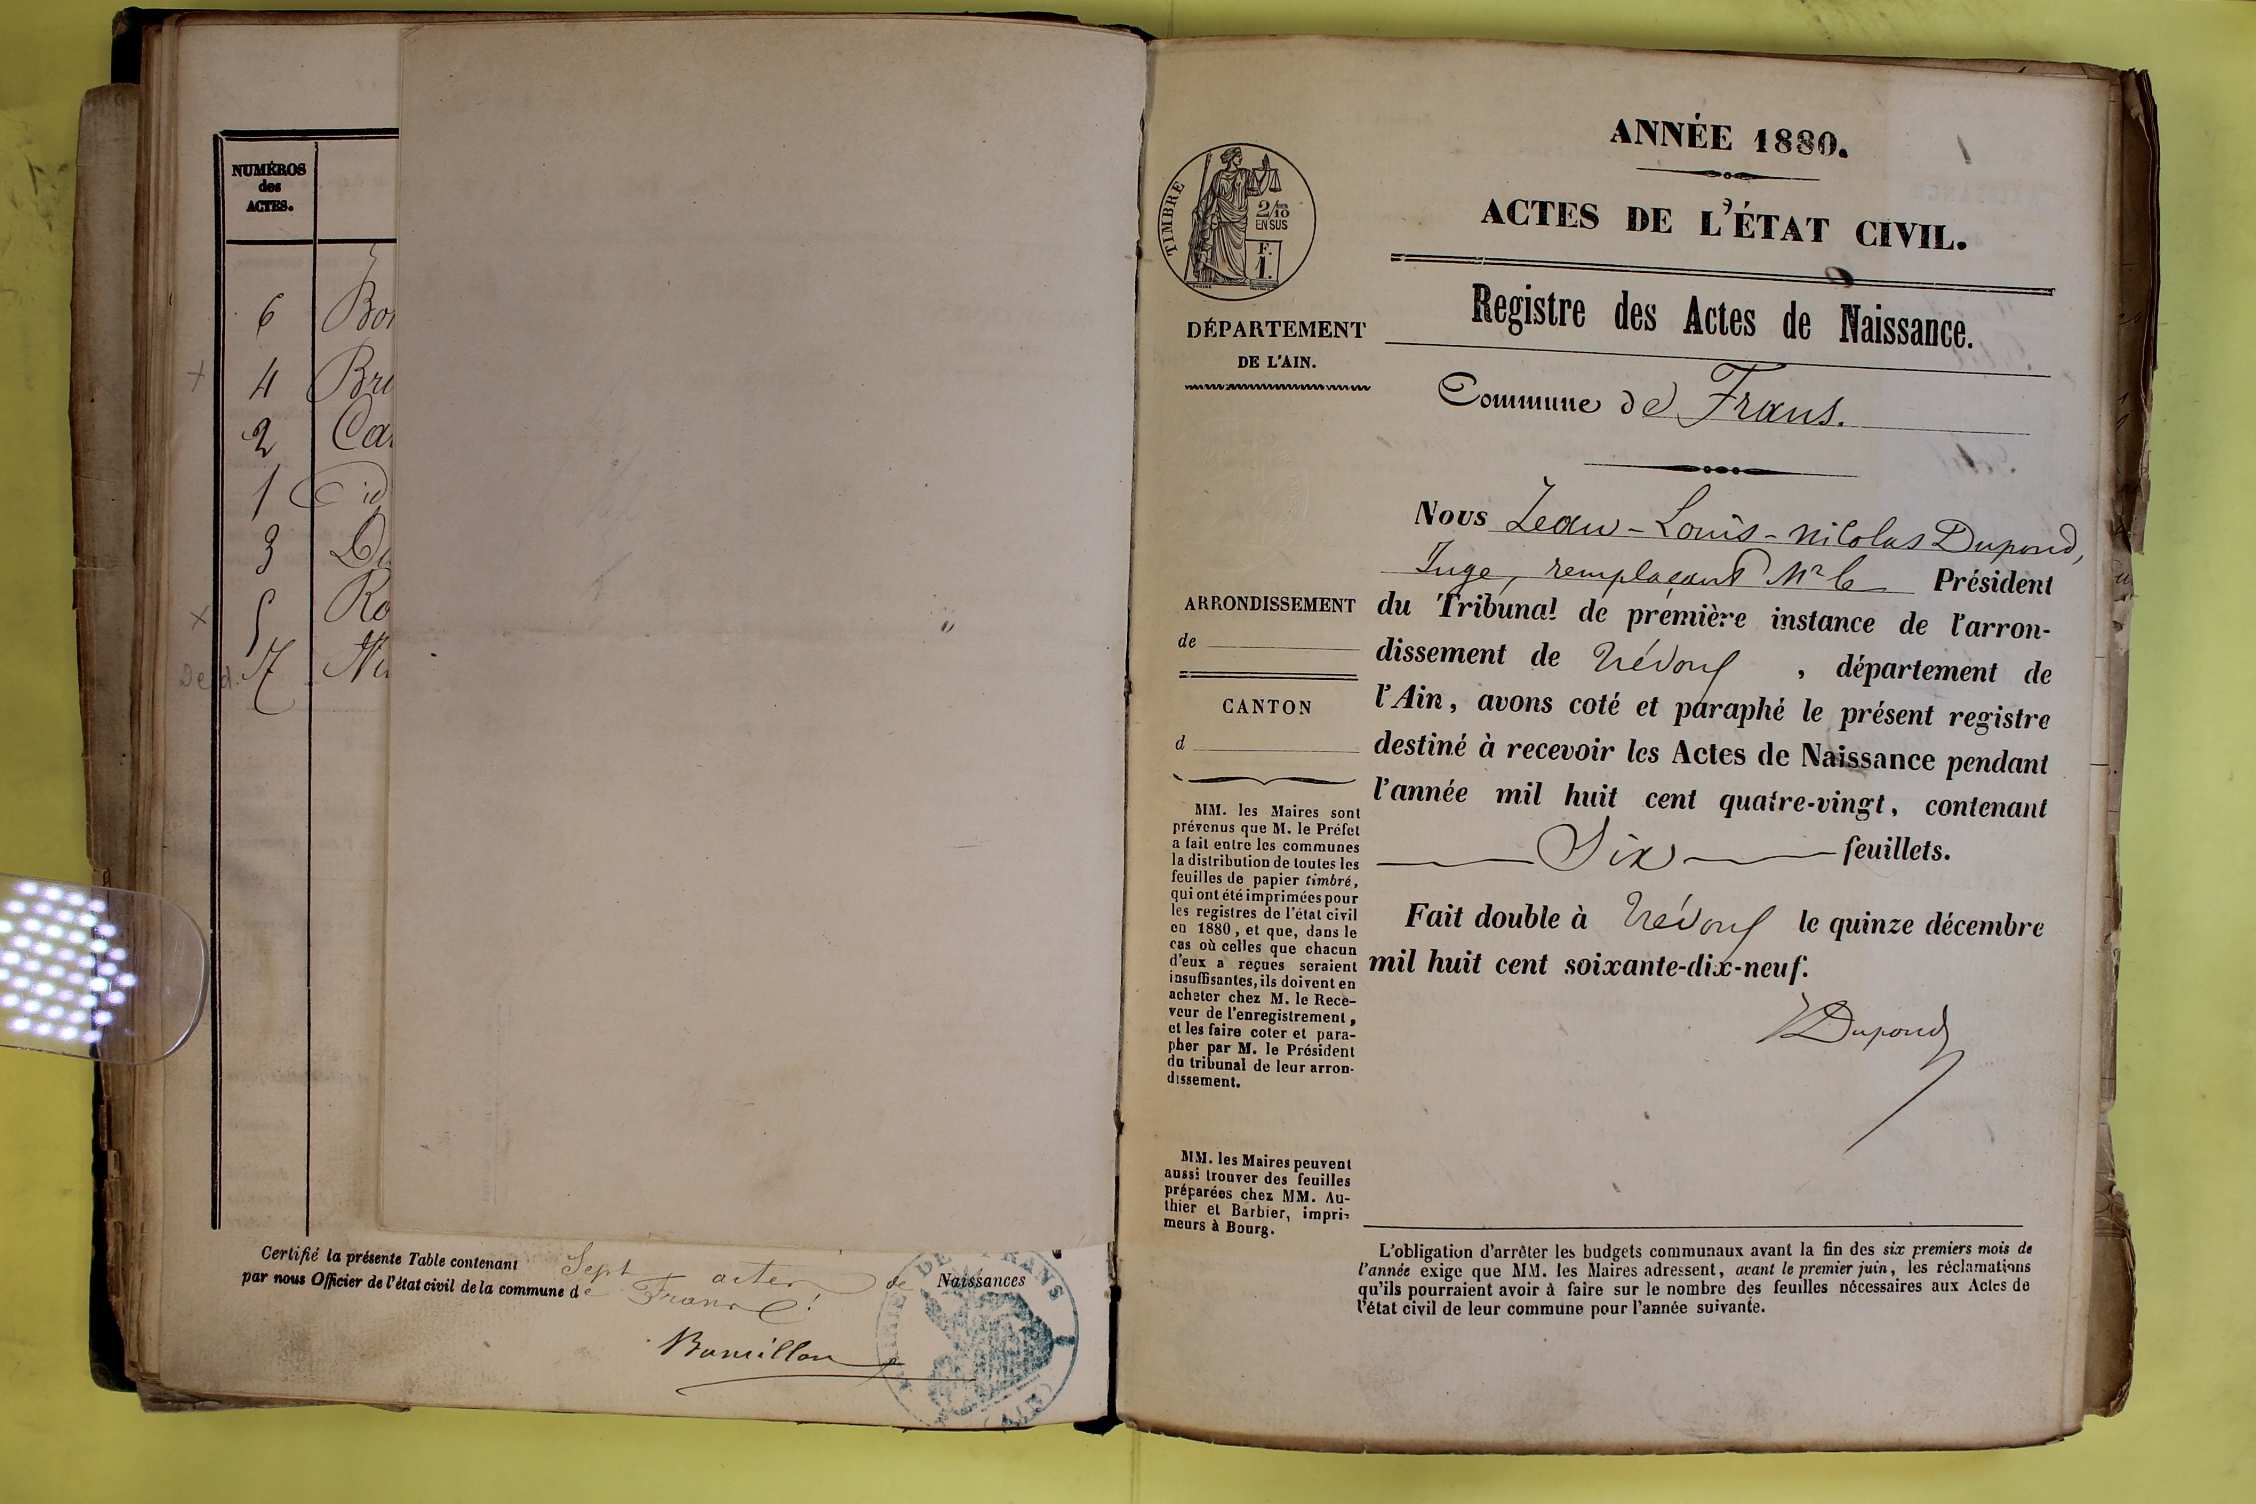 NUMÉROS
des
ACTES.
6 Bon
4 Bru
2 Car
1
3 Du
5 Ro
7
Certifié la présente Table contenant Sept actes de Naissances
par nous Officier de l'état civil de la commune de Frans
TIMBRE
2/10
EN SUS
F.
1.
DÉPARTEMENT
DE L'AIN.
ARRONDISSEMENT
de
CANTON
d
MM. les Maires sont
prévenus que M. le Préfet
a fait entre les communes
la distribution de toutes les
feuilles de papier timbré,
qui ont été imprimées pour
les registres de l'état civil
en 1880, et que, dans le
cas où celles que chacun
d'eux a reçues seraient
insuffisantes, ils doivent en
acheter chez M. le Rece-
veur de l'enregistrement,
et les faire coter et para-
pher par M. le Président
du tribunal de leur arron-
dissement.
MM. les Maires peuvent
aussi trouver des feuilles
préparées chez MM. Au-
thier et Barbier, impri-
meurs à Bourg.
ANNÉE 1880.
1
ACTES DE L'ÉTAT CIVIL.
Registre des Actes de Naissance.
Commune de Frans.
Nous Jean-Louis-Nicolas Dupond,
Juge, remplaçant Mr le Président
du Tribunal de première instance de l'arron-
dissement de Trévoux, département de
l'Ain, avons coté et paraphé le présent registre
destiné à recevoir les Actes de Naissance pendant
l'année mil huit cent quatre-vingt, contenant
Six feuillets.
Fait double à Trévoux le quinze décembre
mil huit cent soixante-dix-neuf.
Dupond
L'obligation d'arrêter les budgets communaux avant la fin des six premiers mois de
l'année exige que MM. les Maires adressent, avant le premier juin, les réclamations
qu'ils pourraient avoir à faire sur le nombre des feuilles nécessaires aux Actes de
l'état civil de leur commune pour l'année suivante.